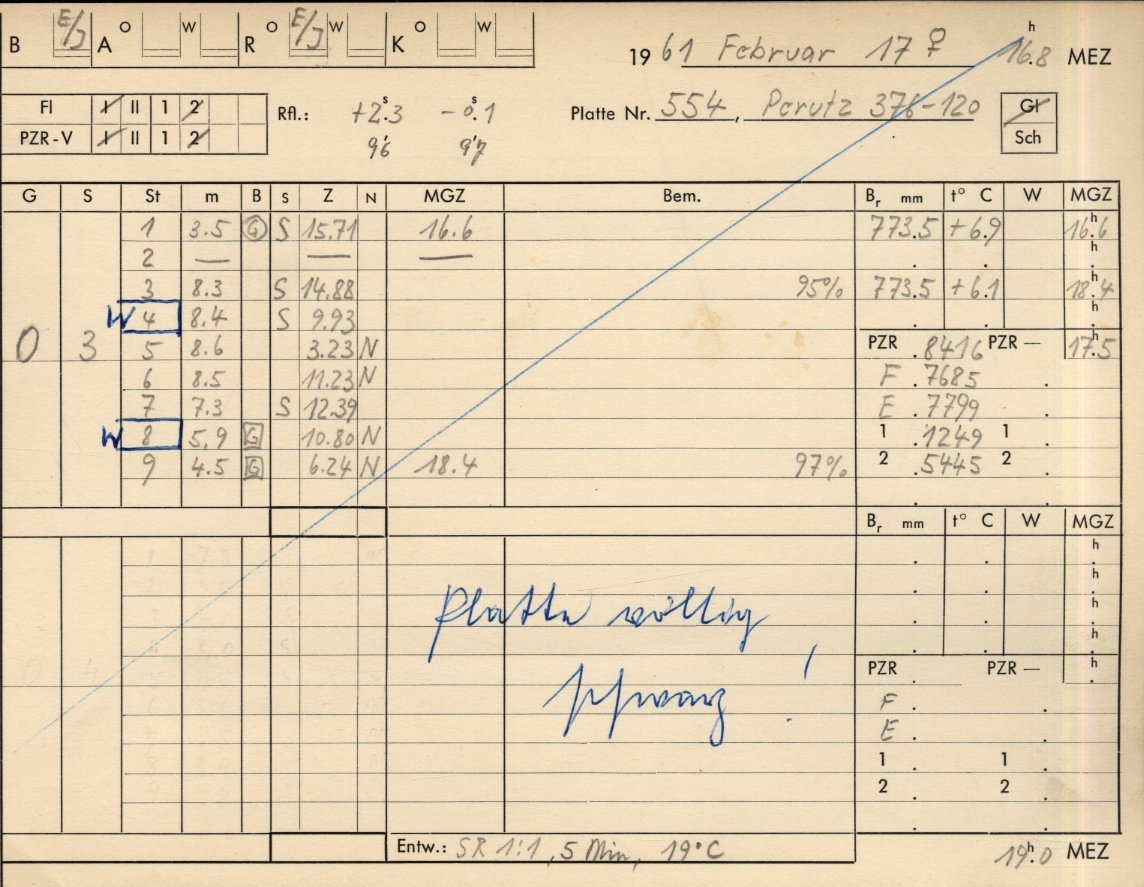 B E/J A O W R O E/J W K O W
1961 Februar 17 ♀ 16.8 h MEZ
Fl I II 1 2
PZR-V I II 1 2
Rfl.: +2.3 s −0.1 s
9.6 9.7
Platte Nr. 554, Perutz 376-120
Gl
Sch
G S St m B S Z N MGZ Bem. Br mm t° C W MGZ
1 3.5 G S 15.71 16.6 773.5 +6.9 16.6 h
2 — — — h
3 8.3 S 14.88 95% 773.5 +6.1 18.4 h
W 4 8.4 S 9.93 h
0 3 5 8.6 3.23 N PZR .8416 PZR — 17.5 h
6 8.5 11.23 N F .7685
7 7.3 S 12.39 E .7799
W 8 5.9 G 10.80 N 1 .1249 1
9 4.5 G 6.24 N 18.4 97% 2 .5445 2
Br mm t° C W MGZ
h
h
h
h
Platte völlig
schwarz!
PZR PZR — h
F .
E .
1 . 1 .
2 . 2 .
Entw.: SR 1:1, 5 Min, 19°C
19.0 h MEZ